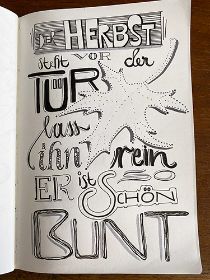 DER HERBST
steht VOR der
TÜR
lass
ihn rein
ER ist SCHÖN
BUNT